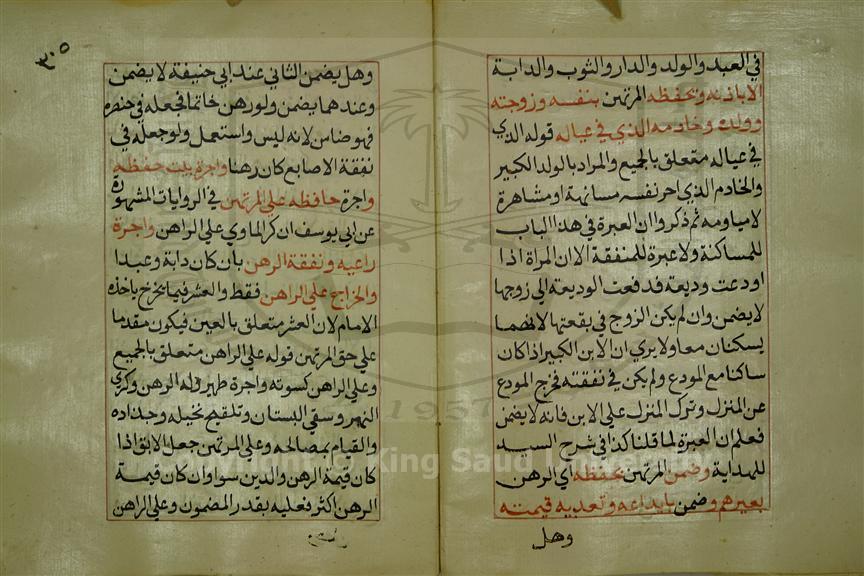 في العبد والولد والدار والثوب والدابة
الا باذنه وتحفظه المرتهن بنفسه وزوجته
وولده وخادمه الذي في عياله قوله الذي
في عياله متعلق بالجميع والمراد بالولد الكبير
والخادم الذي اجر نفسه مسانهة او مشاهرة
لا مياومه ثم ذكروا ان العبرة في هذا الباب
للمساكنة ولا عبرة للمنفقة الا ان المراة اذا
اودعت وديعة فدفعت الوديعة الى زوجها
لا يضمن وان لم يكن الزوج في يقعتها لانهما
يسكنان معا ولا يري ان الابن الكبير اذا كان
ساكنا مع المودع ولم يكن في نفقته فخرج المودع
عن المنزل وترك المنزل علي الابن فانه لا يضمن
فعلم ان العبرة لما قلنا كذا في شرح السيد
للهداية وضمن المرتهن بحفظه اي الرهن
بغيرهم وضمن بايداعه وتعديه قيمته
وهل
٣٠٥
وهل يضمن الثاني عند ابي حنيفة لا يضمن
وعندهما يضمن ولو رهن خاتما فجعله في خنصره
فهو ضامن لانه ليس واستعمل ولو جعله في
نفقة الاصابع كان رهنا واجرة بيت حفظه
واجرة حافظه علي المرتهن في الروايات المشهورة
عن ابي يوسف ان كرا الماوي علي الراهن واجرة
راعيه ونفقة الرهن بان كان دابة وعبدا
والخراج علي الراهن فقط والعشر فيما يخرج ياخذه
الامام لان العشر متعلق بالعين فيكون مقدما
علي حق المرتهن قوله علي الراهن متعلق بالجميع
وعلي الراهن كسوته واجرة ظهر ولد الرهن وكري
النهر وسقي البستان وتلقيح نخيله وجذاذه
والقيام بمصالحه وعلي المرتهن جعل الابق اذا
كان قيمة الرهن والدين سوا وان كان قيمة
الرهن اكثر فعليه بقدر المضمون وعلي الراهن
King Saud
1957